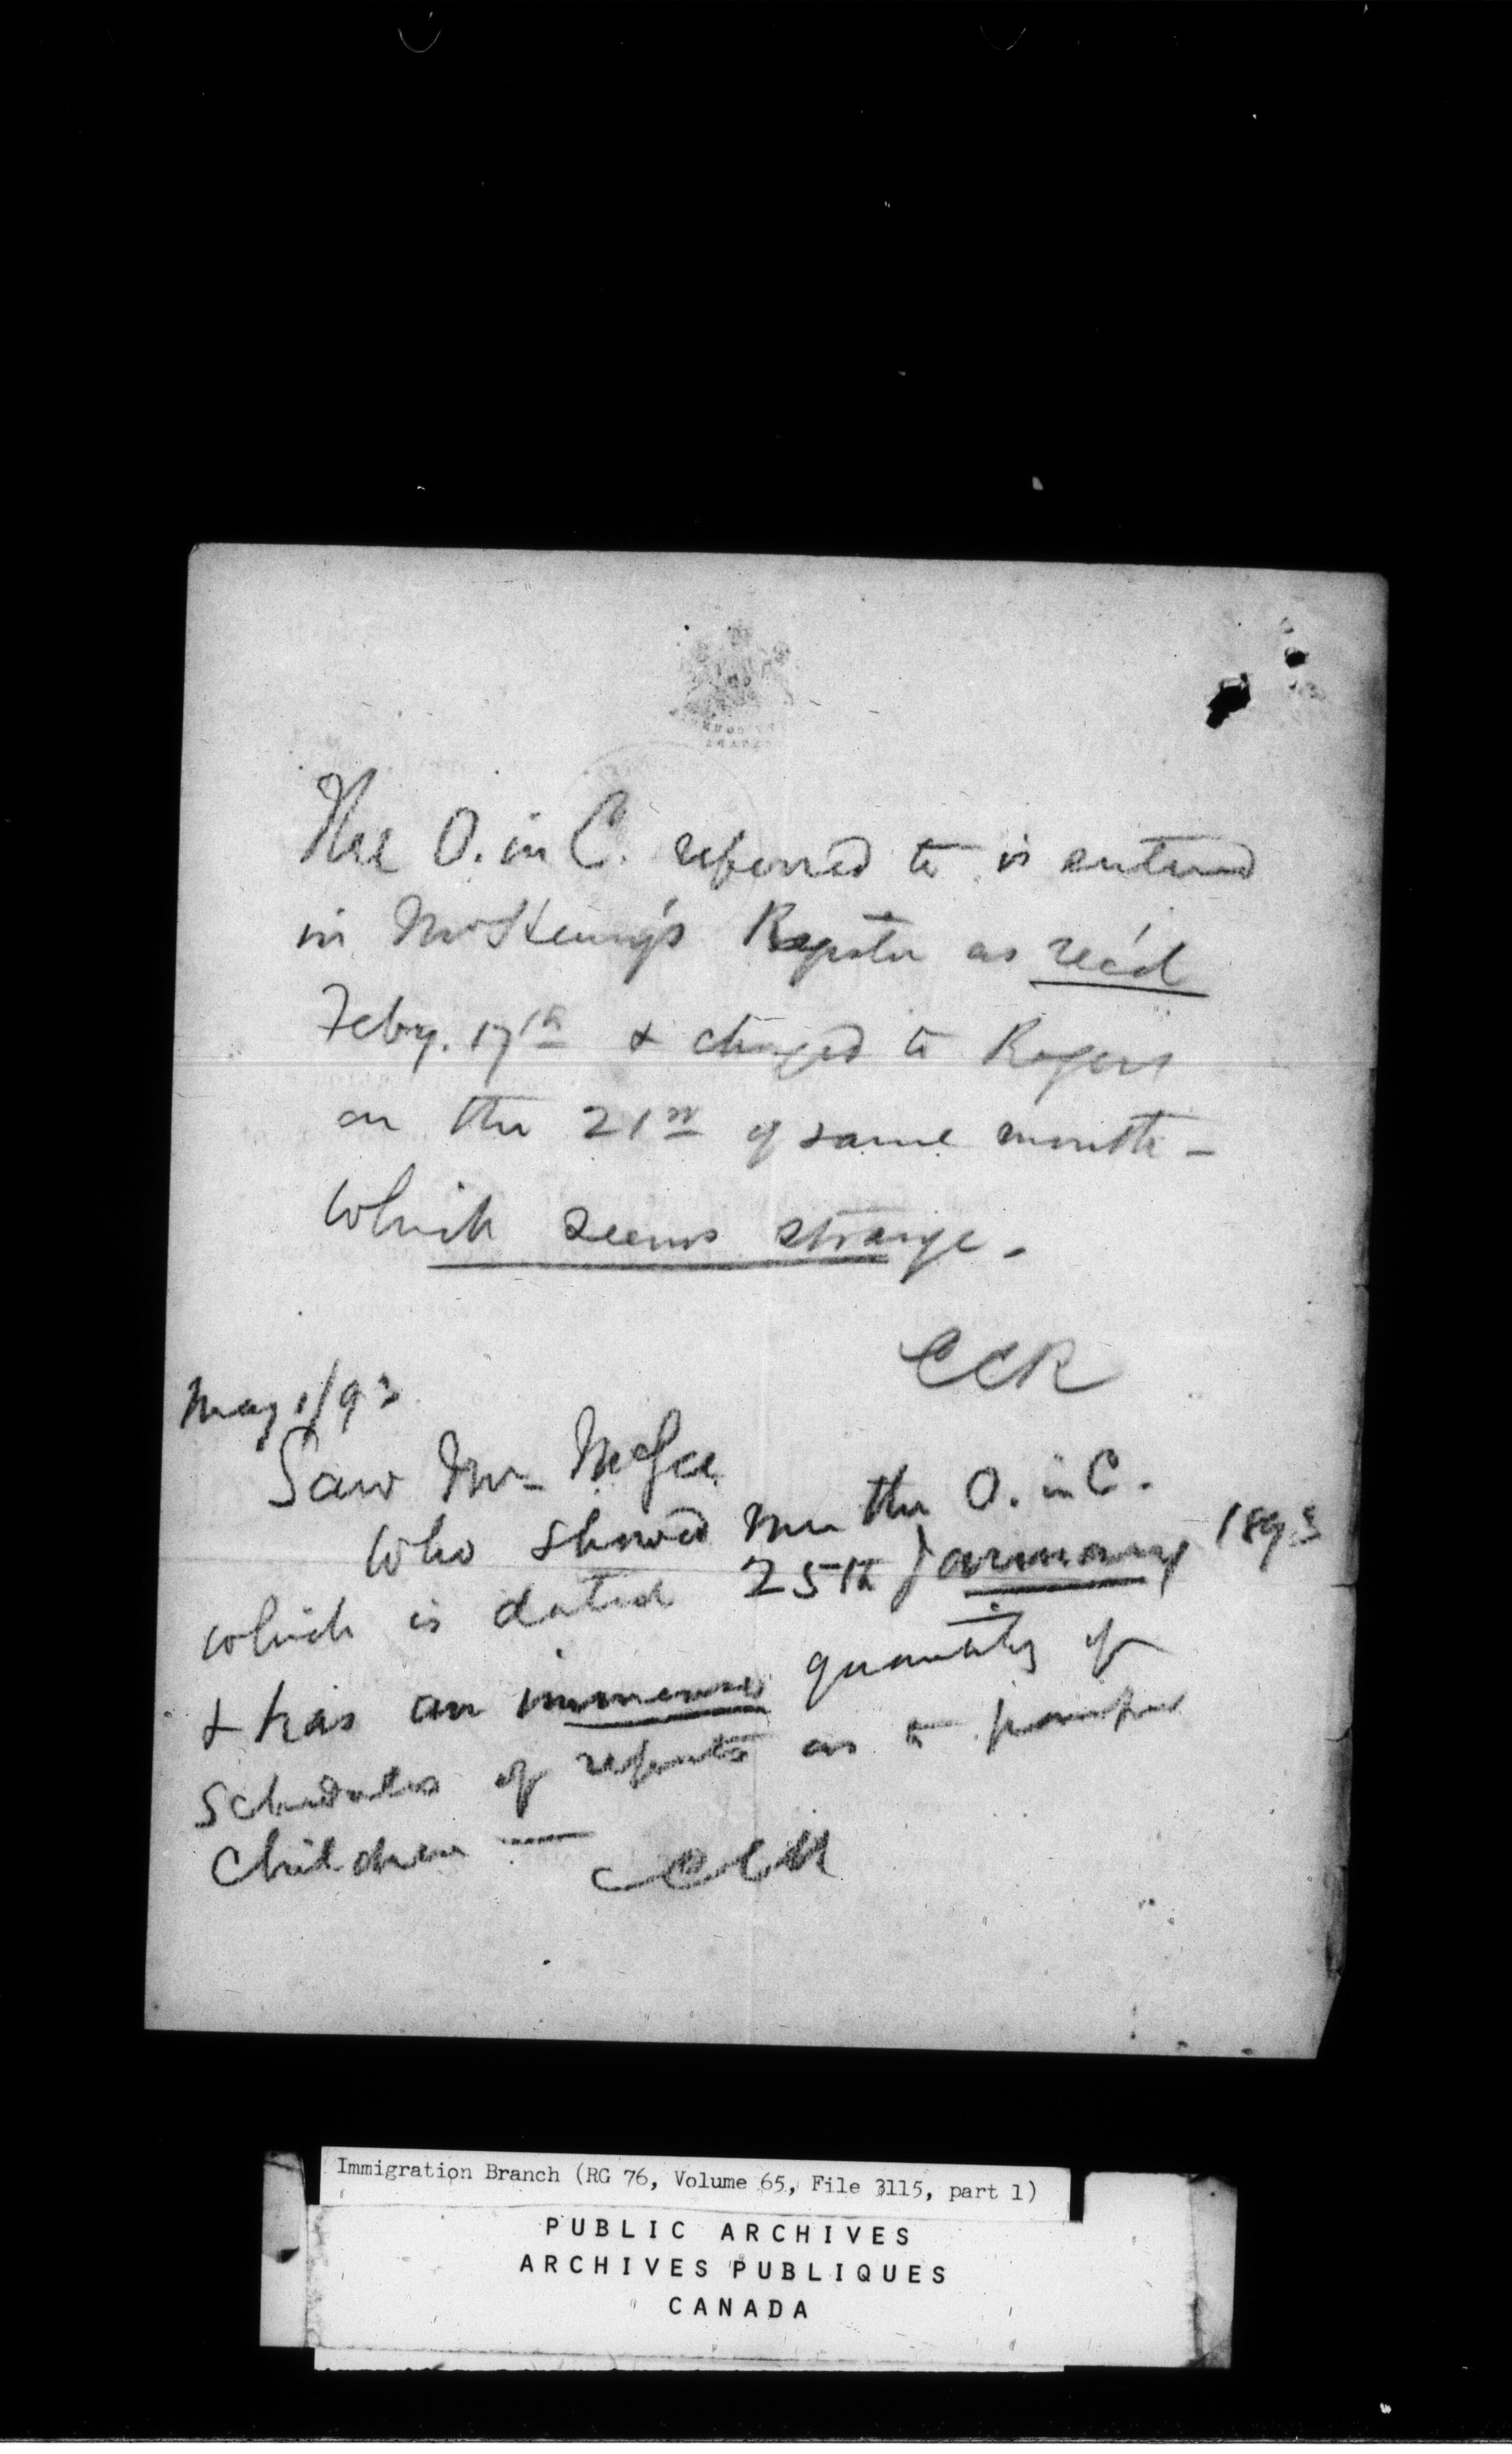 The O. in C. referred to is entered
in Register as rec'd
Feby. 17th & charged to Rogers
on the 21st of same month –
which seems strange.
CCR
May 1/93
Saw Mr McGee
who showed me the O. in C.
which is dated 25th January 1893
& has an immense quantity of
schedules of reports as to pauper
children —
Immigration Branch (RG 76, Volume 65, File 3115, part 1)
PUBLIC ARCHIVES
ARCHIVES PUBLIQUES
CANADA